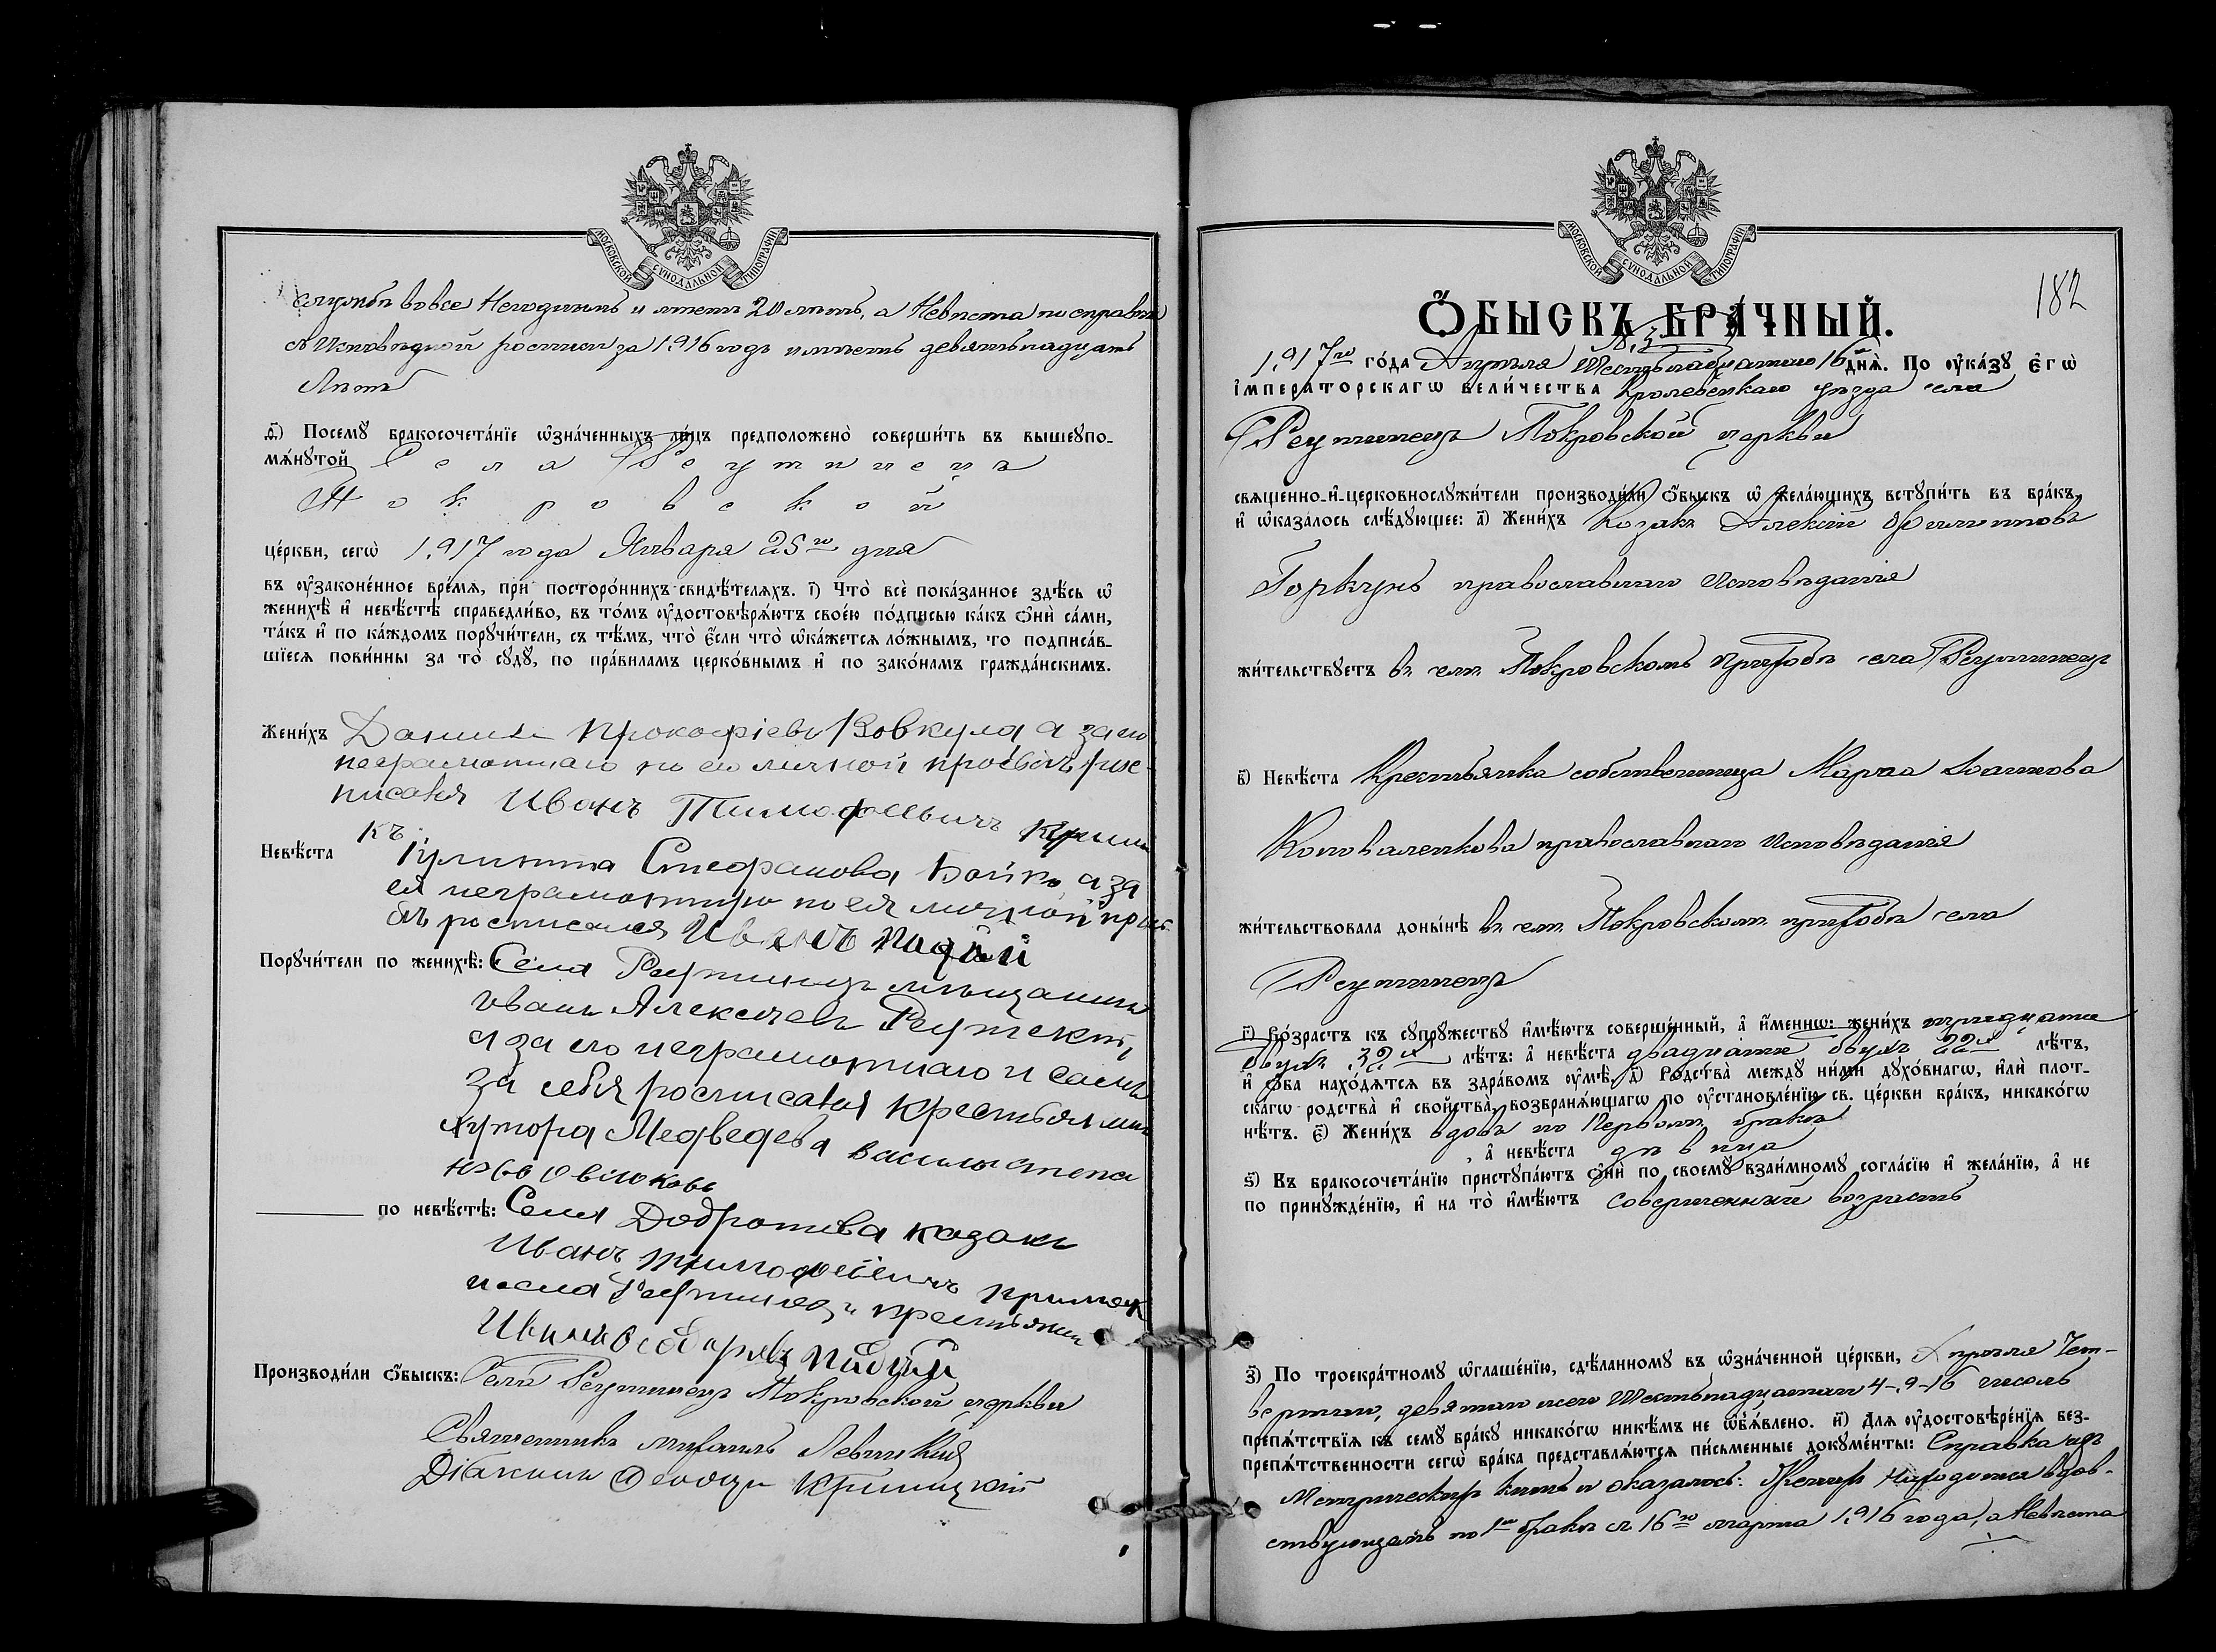 МОСКОВСКОЙ СѴНОДАЛЬНОЙ ТИПОГРАФІИ
службѣ вовсе Негоднымъ и имеетъ 20 лѣтъ, а Невѣста по справкѣ
съ Исповѣдной росписи за 1916 годъ имѣетъ девятнадцать
Лѣтъ
ѳ҃) Посемꙋ бракосочета́нїе ѡ҆зна́ченныхъ ли́цъ предположено̀ соверши́ть въ вышеꙋпо-
мѧ́нꙋтой Села Реутинецъ
Покровской
це́ркви, сегѡ̀ 1917 года Января 25го дня
въ ᲂу҆законе́нное вре́мѧ, при посторо́ннихъ свидѣ́телѧхъ. і҃) Что̀ всѐ пока́занное здѣ́сь ѡ҆
женихѣ̀ и҆ невѣ́стѣ справедли́во, въ то́мъ ᲂу҆достовѣрѧ́ютъ свое́ю по́дписью ка́къ ѻ҆нѝ са́ми,
та́къ и҆ по ка́ждомъ порꙋчи́тели, съ тѣ́мъ, что̀ є҆́сли что̀ ѡ҆ка́жетсѧ ло́жнымъ, то подписа́в-
шїесѧ пови́нны за то̀ сꙋдꙋ̀, по пра́виламъ церко́внымъ и҆ по зако́намъ гражда́нскимъ.
Жени́хъ Даниилъ Прокофіевъ Вовкула а за его
неграмотнаго по его личной прозбѣ рос-
писался Иванъ Тимофеевичъ
Невѣ́ста Кулинна Стефанова Бойко, а за
ея неграмотную по ея личной прось
бѣ росписался Иванъ Падій
Порꙋчи́тели по женихѣ̀: Села Реутинецъ мѣщанинъ
Иванъ Алексеевъ
а за его неграмотнаго и самъ
за себя росписался Крестьянинъ
хутора Медведева Василь степа
по невѣ́стѣ: Села Добротова казакъ
Иванъ Тимофеевичъ
села Реутинецъ крестьянин
Иванъ Падій
Производи́ли ѻ҆́быскъ: Села Реутинецъ Покровской церкви
Священникъ Михаилъ Левицкій
Діаконъ Ѳеодоръ Криницкій
МОСКОВСКОЙ СѴНОДАЛЬНОЙ ТИПОГРАФІИ
182
Ѻ҆́БЫСКЪ БРА́ЧНЫЙ.
1917го го́да Апрѣля Шестнадцатаго 16 днѧ̀. По ᲂу҆ка́зꙋ Є҆гѡ̀
І҆мпера́торскагѡ вели́чества Кролевецкаго уѣзда села
Реутинецъ Покровской церкви
свѧщенно-и҆-церковнослꙋжи́тели производи́ли ѻ҆́быскъ ѡ҆ жела́ющихъ встꙋпи́ть въ бра́къ,
и҆ ѡ҆каза́лось слѣ́дꙋющее: а҃) Жени́хъ Козакъ Алексій Филипповъ
Горкунъ православнаго исповѣданія
жи́тельствꙋетъ въ семъ Покровскомъ приходѣ села Реутинецъ
в҃) Невѣ́ста Крестьянка собственница Марѳа Іоаннова
Коноваленкова православнаго исповѣданія
жи́тельствовала доны́нѣ въ семъ Покровскомъ приходѣ села
Реутинецъ
г҃) Во́зрастъ къ сꙋпрꙋ́жествꙋ и҆мѣ́ютъ соверше́нный, а҆ и҆́менно: жени́хъ тридцати
двухъ 32хъ лѣ́тъ: а҆ невѣ́ста двадцати двухъ 22хъ лѣ́тъ,
и҆ ѻ҆́ба нахо́дѧтсѧ въ здра́вомъ ᲂу҆мѣ̀. д҃) Родства̀ междꙋ ни́ми дꙋхо́внагѡ, и҆лѝ плот-
ска́гѡ родства̀ и҆ свойства̀, возбранѧ́ющагѡ по ᲂу҆становле́нїю св. це́ркви бра́къ, никако́гѡ
нѣ́тъ. є҃) Жени́хъ вдовъ по Первомъ бракѣ
, а҆ невѣ́ста дѣвица
ѕ҃) Въ бракосочета́нїю пристꙋпа́ютъ ѻ҆нѝ по своемꙋ̀ взаи́мномꙋ согла́сїю и҆ жела́нїю, а҆ не
по принꙋжде́нїю, и҆ на то̀ и҆мѣ́ютъ совершенный возрастъ
з҃) По троекра́тномꙋ ѡ҆глаше́нїю, сдѣ́ланномꙋ въ ѡ҆зна́ченной це́ркви, Апрѣля Чет-
вертаго, девятаго и Шестнадцатаго 4-9-16 чиселъ
препѧ́тствїѧ къ семꙋ̀ бра́кꙋ никако́гѡ никѣ́мъ не ѡ҆б̾ѧ́влено. и҃) Для ᲂу҆достовѣре́нїѧ без-
препѧ́тственности сегѡ̀ бра́ка представлѧ́ютсѧ пи́сьменные докꙋме́нты: Справка изъ
Метрическихъ книгъ и оказалось: Женихъ Находится вдов-
ствующимъ по 1мъ бракѣ съ 16го марта 1916 года, а Невѣста